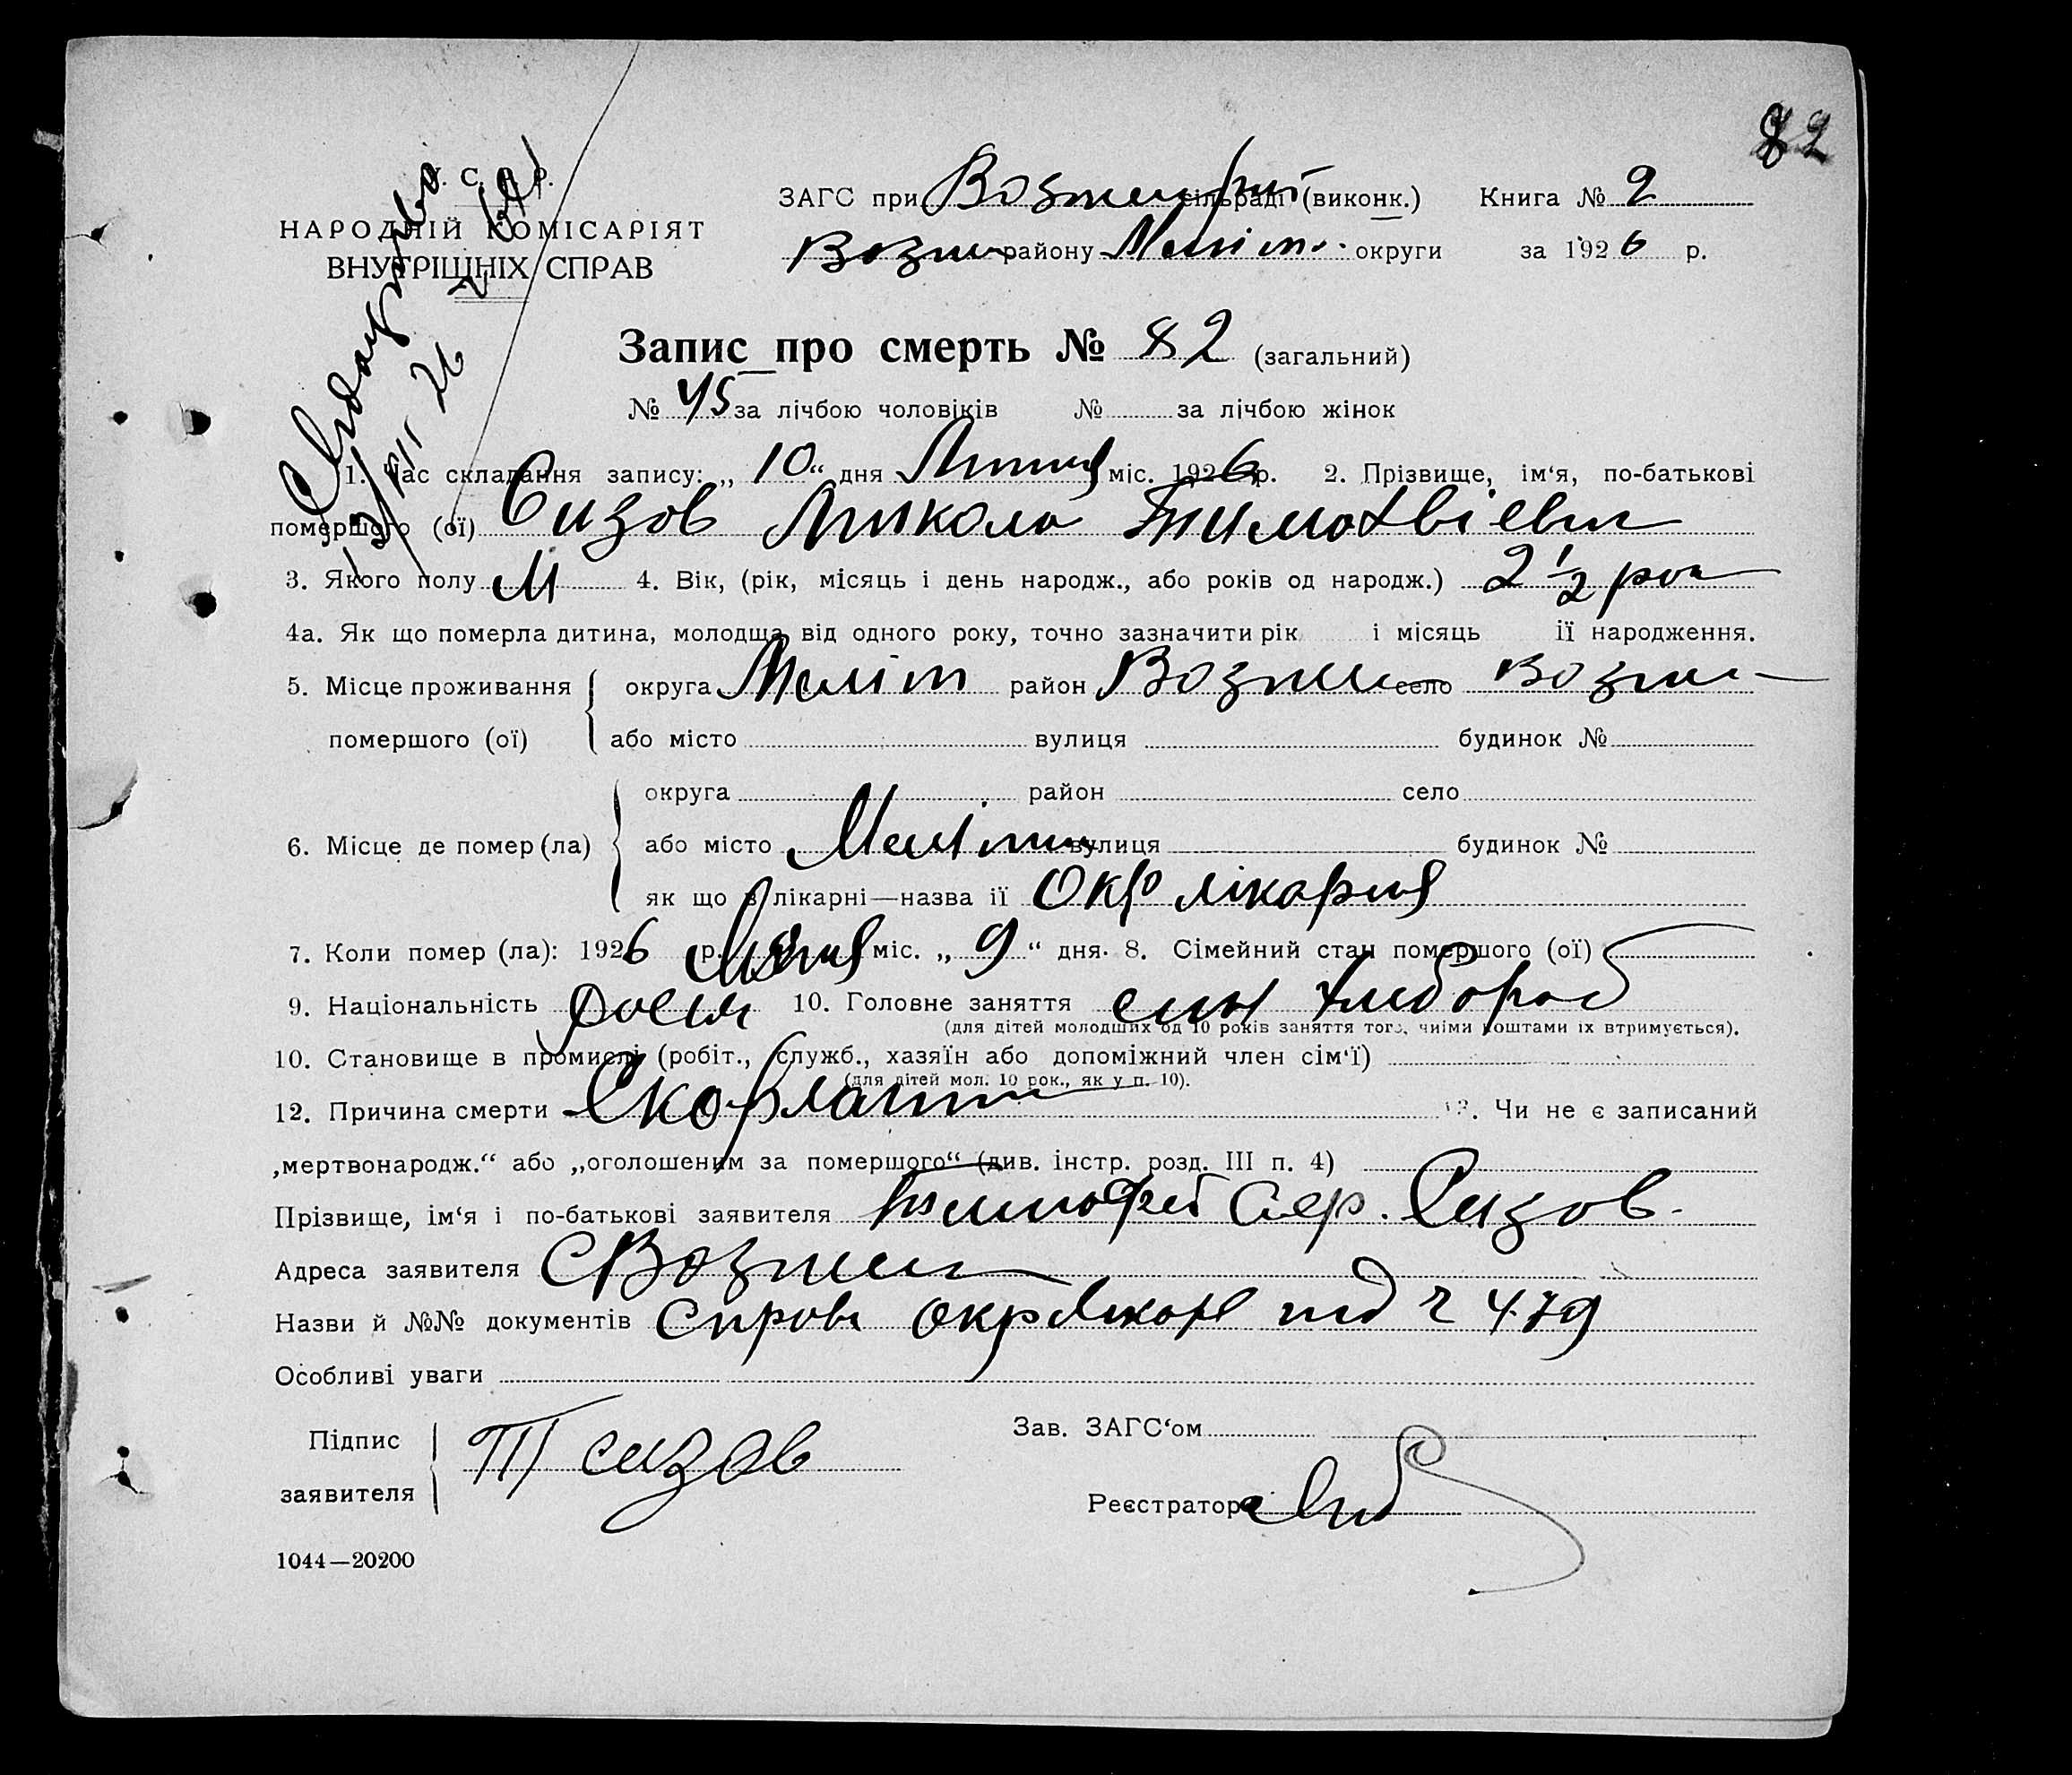 82
У. С. Р. Р.
НАРОДНІЙ КОМІСАРІЯТ
ВНУТРІШНІХ СПРАВ
ЗАГС при сільраді (виконк.) Книга № 2
Возне району Меліт. округи за 1926 р.
Запис про смерть № 82 (загальний)
№ 45 за лічбою чоловіків № за лічбою жінок
1. Час складання запису: „ 10 “ дня Липня міс. 1926 р. 2. Прізвище, ім‘я, по-батькові
помершого (ої) Сизов Микола
3. Якого полу М 4. Вік, (рік, місяць і день народж., або років од народж.) 2 1/2 рок
4а. Як що померла дитина, молодша від одного року, точно зазначити рік і місяць її народження.
5. Місце проживання округа Меліт район Возне село Возне
помершого (ої) або місто вулиця будинок №
округа район село
6. Місце де помер (ла) або місто Меліт вулиця будинок №
як що в лікарні—назва її Окр лікарня
7. Коли помер (ла): 1926 р. Липня міс. „ 9 “ дня. 8. Сімейний стан помершого (ої)
9. Національність 10. Головне заняття син хлібороб
(для дітей молодших од 10 років заняття того, чиїми коштами їх втримується).
10. Становище в промислі (робіт., служб., хазяїн або допоміжний член сім‘ї)
(для дітей мол. 10 рок., як у п. 10).
12. Причина смерти Скорлатина 13. Чи не є записаний
„мертвонародж.“ або „оголошеним за помершого“ (див. інстр. розд. III п. 4)
Прізвище, ім‘я і по-батькові заявителя Тимофей Сер. Сизов.
Адреса заявителя С Возне
Назви й №№ документів Справк Окр Лікар під ч 479
Особливі уваги
Підпис Т Сизов Зав. ЗАГС‘ом
заявителя Реєстратор
1044—20200